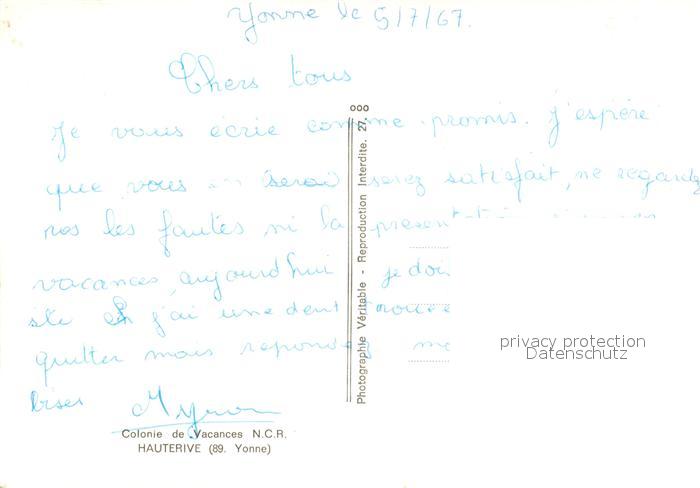 Yonne le 5/7/67.
Chers tous
ooo
Je vous écrie comme promis. j'espère
que vous serez satisfait, ne regardez
pas les fautes ni la present
vacances, aujourd'hui je doi
j'ai une dent trouée
quitter mais repondez
bises
Photographie Véritable - Reproduction Interdite. 27.
privacy protection
Datenschutz
Colonie de Vacances N.C.R.
HAUTERIVE (89. Yonne)